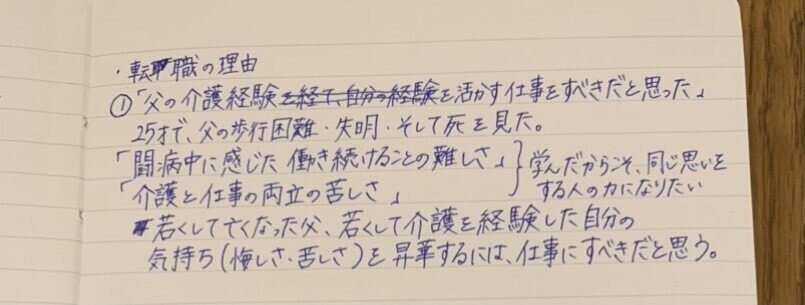 ・転職の理由
①「父の介護経験を経て、自分の経験を活かす仕事をすべきだと思った」
25才で、父の歩行困難・失明・そして死を見た。
「闘病中に感じた 働き続けることの難しさ」
「介護と仕事の両立の苦しさ」
学んだからこそ、同じ思いを
する人の力になりたい
若くして亡くなった父、若くして介護を経験した自分の
気持ち(悔しさ・苦しさ)を昇華するには、仕事にすべきだと思う。